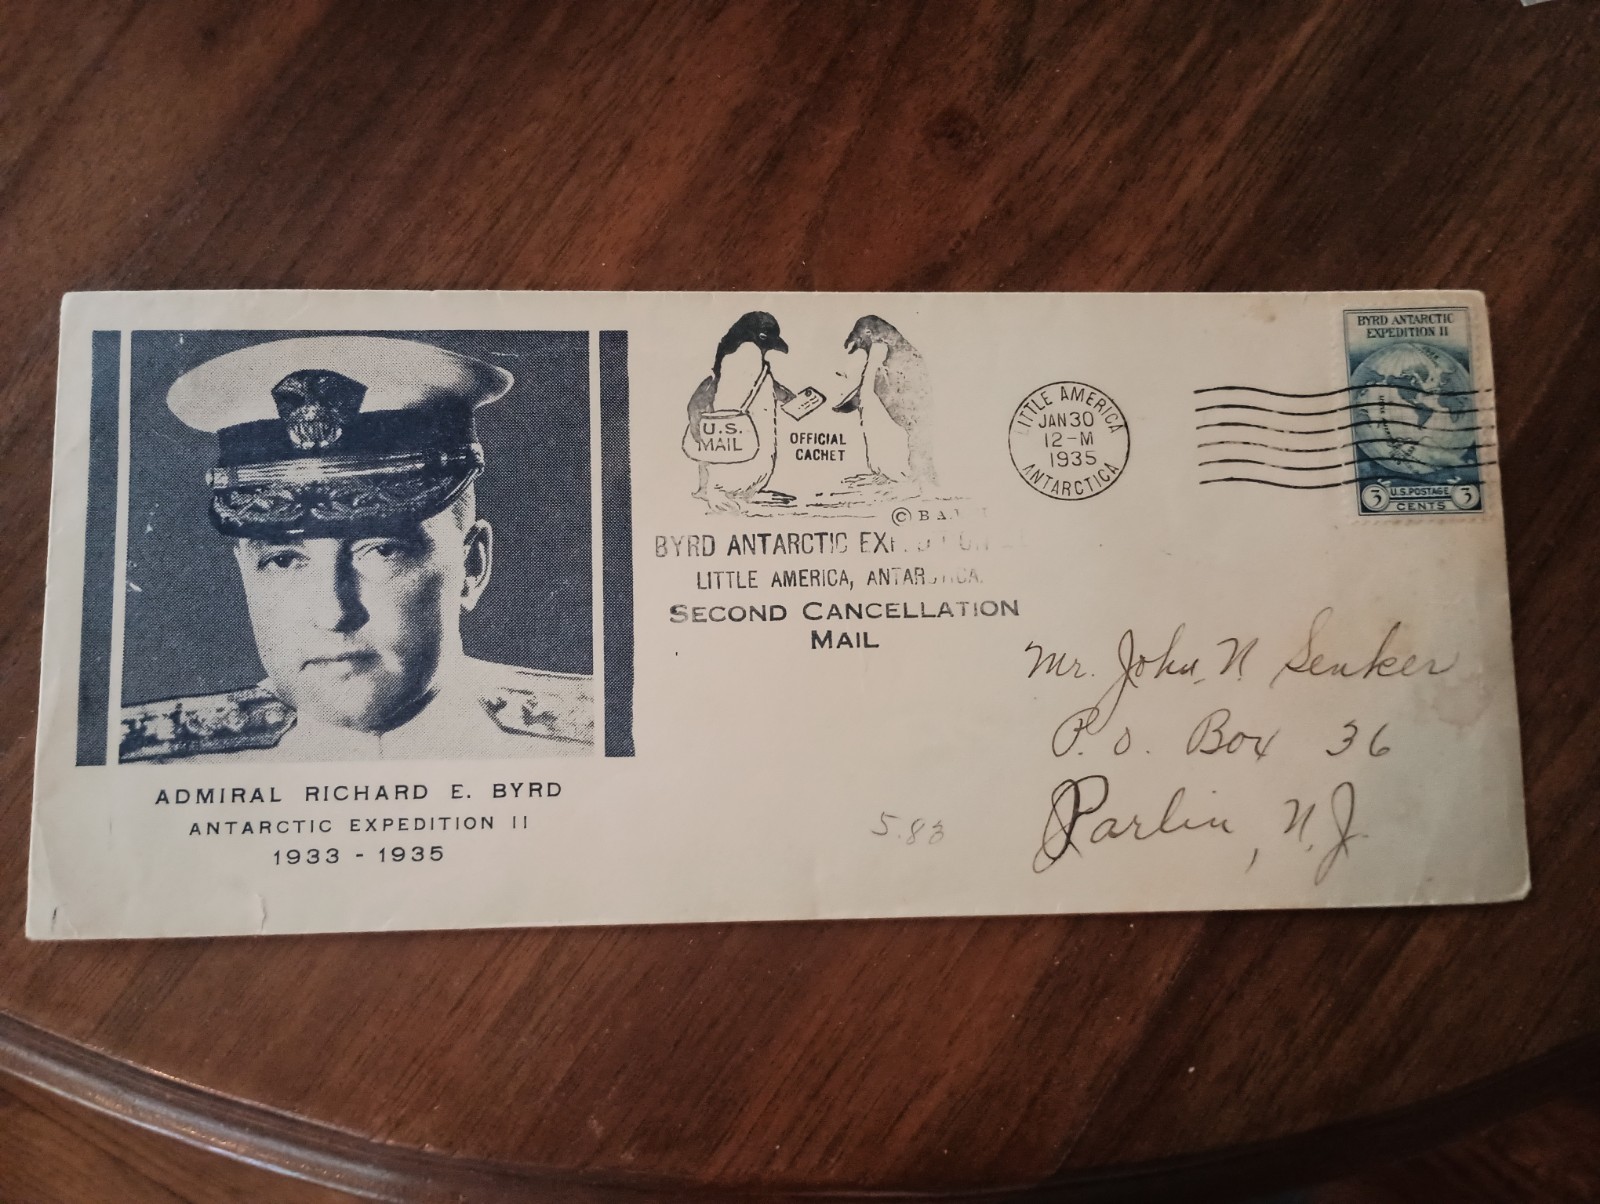 ADMIRAL RICHARD E. BYRD
ANTARCTIC EXPEDITION II
1933 - 1935
U.S.
MAIL
OFFICIAL
CACHET
© B.A.
BYRD ANTARCTIC
LITTLE AMERICA, ANTARCTICA.
SECOND CANCELLATION
MAIL
LITTLE AMERICA
JAN 30
12-M
1935
ANTARCTICA
BYRD ANTARCTIC
EXPEDITION II
3 U.S. POSTAGE 3
CENTS
Mr. John N. Senker
P.O. Box 36
Parlin, N.J.
5.83